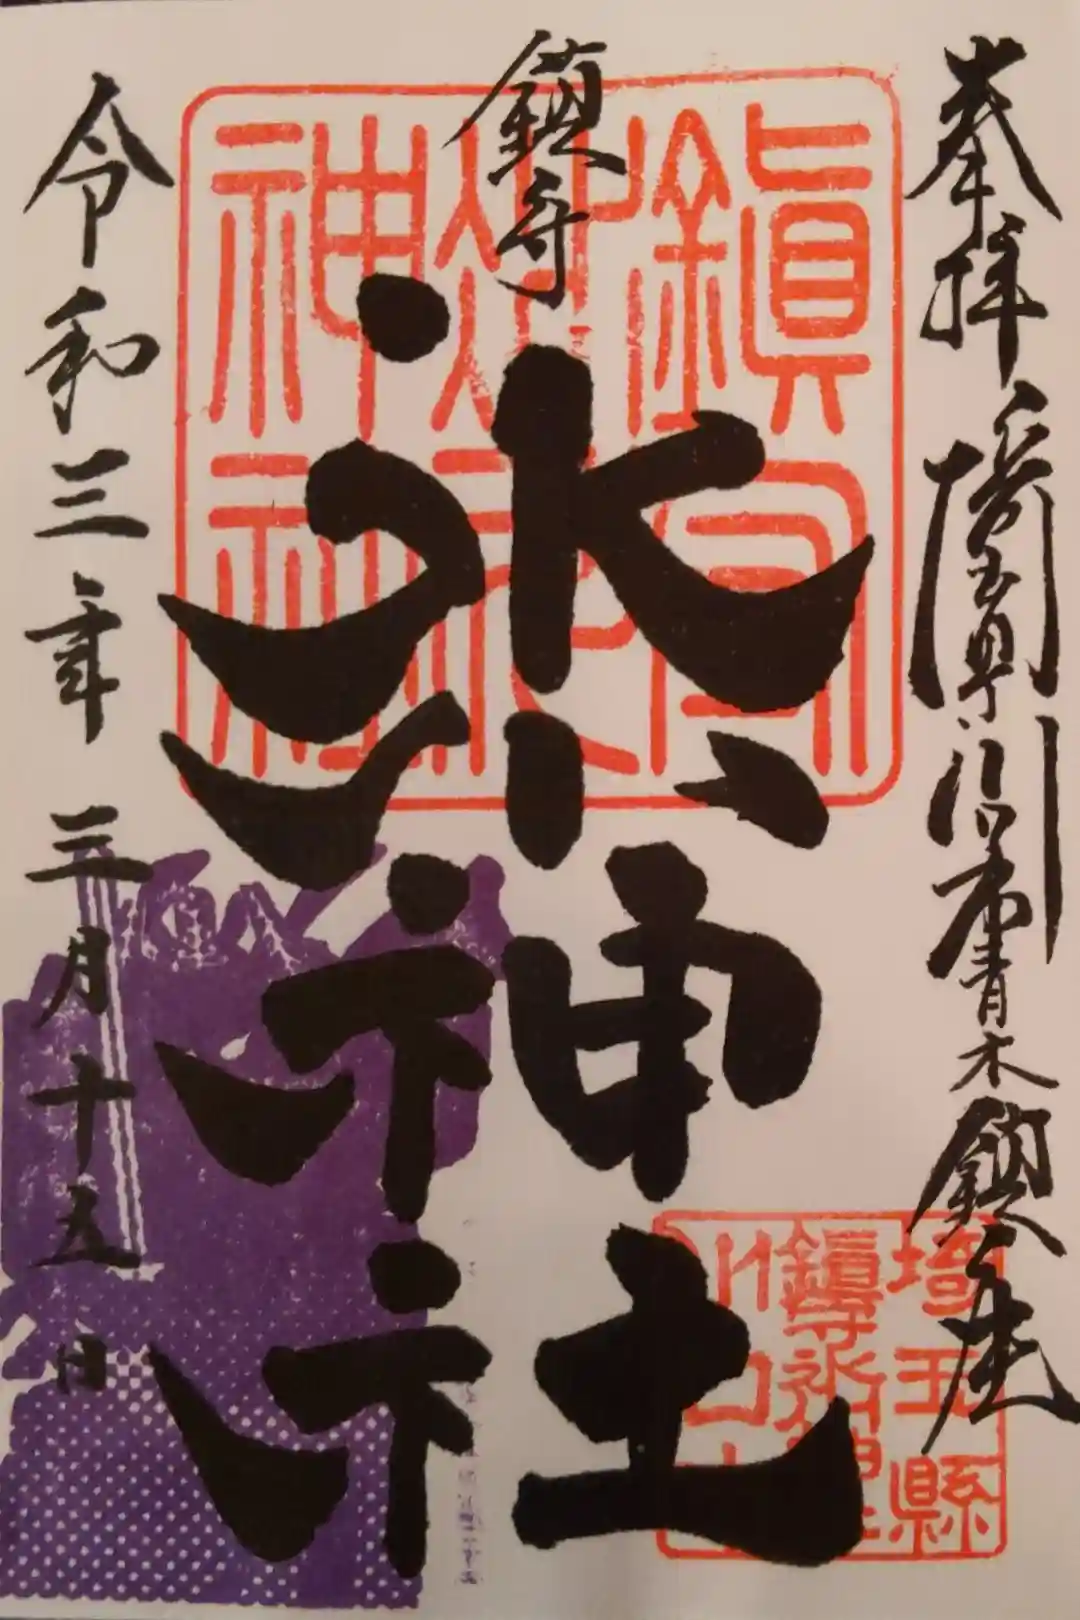 奉拝 埼玉県川口市青木鎮座
鎮守
氷川神社
令和三年 三月十五日
鎭守
氷川
神社
埼玉縣
鎭守氷川神社
川口市